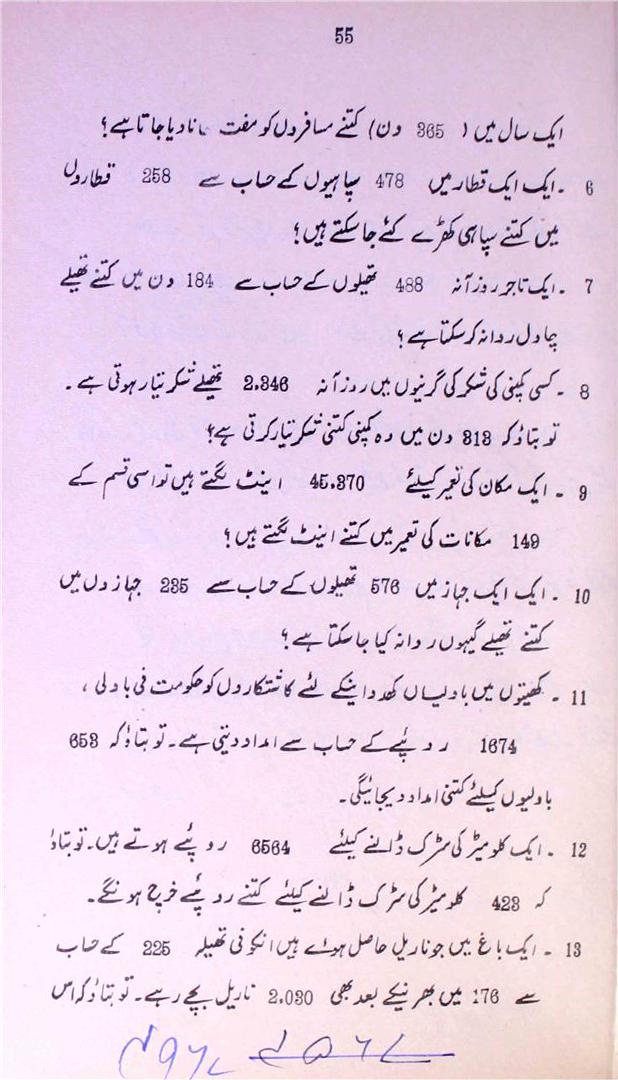 55
ایک سال میں ( 365 دن) کتنے مسافروں کو مفت نا دیا جاتا ہے؟
6 ۔ ایک ایک قطار میں 478 سپاہیوں کے حساب سے 258 قطاروں
میں کتنے سپاہی کھڑے کئے جا سکتے ہیں؟
7 ۔ ایک تاجر روز آنہ 488 تھیلوں کے حساب سے 184 دن میں کتنے تھیلے
چاول روانہ کر سکتا ہے؟
8 ۔ کسی کمپنی کی شکر کی گرنیوں میں روز آنہ 2.346 تھیلے شکر تیار ہوتی ہے۔
تو بتاؤ کہ 313 دن میں وہ کمپنی کتنی شکر تیار کرتی ہے؟
9 ۔ ایک مکان کی تعمیر کیلئے 45.370 اینٹ لگتے ہیں تو اسی قسم کے
149 مکانات کی تعمیر میں کتنے اینٹ لگتے ہیں؟
10 ۔ ایک ایک جہاز میں 576 تھیلوں کے حساب سے 235 جہازوں میں
کتنے تھیلے گیہوں روانہ کیا جا سکتا ہے؟
11 ۔ کھیتوں میں باولیاں کھدوانیکے لئے کاشتکاروں کو حکومت فی باولی ،
1674 روپئے کے حساب سے امداد دیتی ہے۔ تو بتاؤ کہ 653
باولیوں کیلئے کتنی امداد دیجائیگی۔
12 ۔ ایک کلومیٹر کی سڑک ڈالنے کیلئے 6564 روپئے ہوتے ہیں۔ تو بتاؤ
کہ 423 کلومیٹر کی سڑک ڈالنے کیلئے کتنے روپئے خرچ ہونگے۔
13 ۔ ایک باغ میں جو ناریل حاصل ہوئے ہیں انکو فی تھیلہ 225 کے حساب
سے 176 میں بھرنیکے بعد بھی 2.030 ناریل بچے رہے۔ تو بتاؤ کہ اس